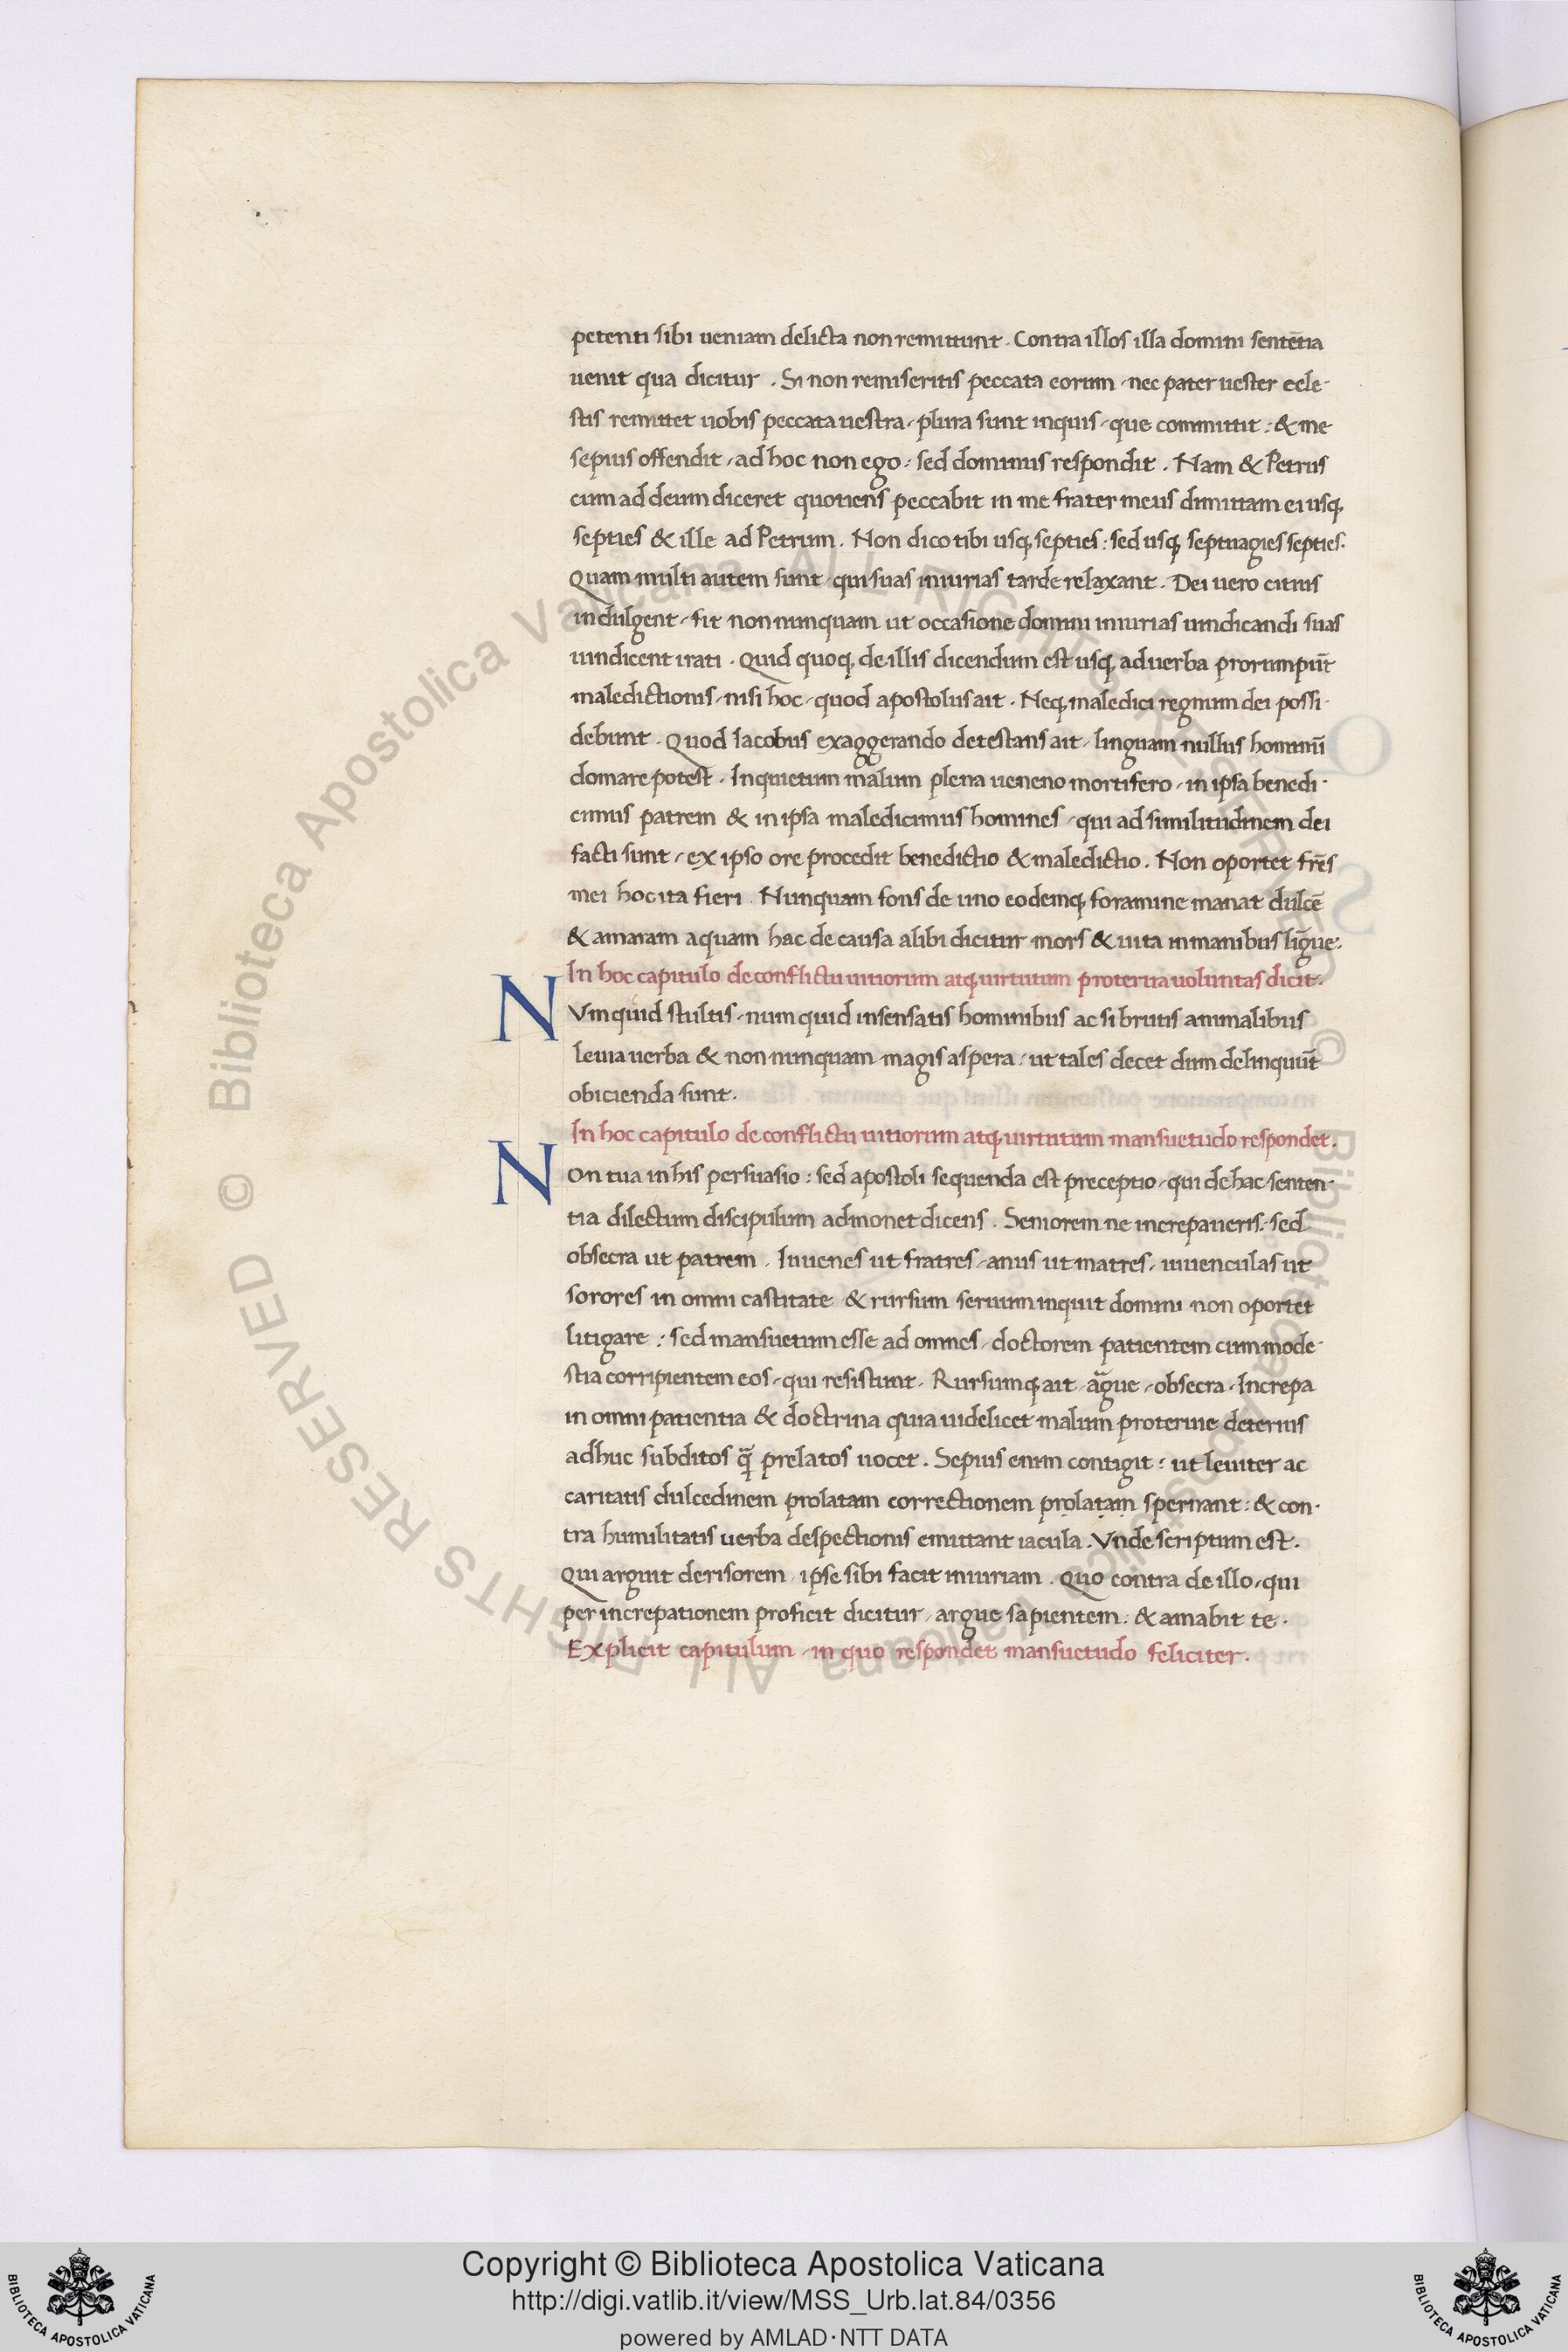 petenti sibi ueniam delicta non remittunt. Contra illos illa domini sentētia
uenit qua dicitur. Si non remiseritis peccata eorum, nec pater uester cele-
stis remittet uobis peccata uestra, plura sunt inquis, que committit: & me
sepius offendit, ad hoc non ego: sed dominus respondit. Nam & Petrus
cum ad deum diceret quotiens peccabit in me frater meus dimittam ei usq;
septies & ille ad Petrum. Non dico tibi usq; septies: sed usq; septuagies septies.
Quam multi autem sunt, qui suas iniurias tarde relaxant. Dei uero citius
indulgent, fit non nunquam ut occasione domini iniurias uindicandi suas
uindicent irati. Quid quoq; de illis dicendum est usq; ad uerba prorumpūt
maledictionis, nisi hoc, quod apostolus ait. Neq; maledici regnum dei possi-
debunt. Quod Iacobus exaggerando detestans ait, linguam nullus hominū
domare potest. Inquietum malum plena ueneno mortifero, in ipsa benedi-
cimus patrem & in ipsa maledicimus homines, qui ad similitudinem dei
facti sunt, ex ipso ore procedit benedictio & maledictio. Non oportet frēs
mei hoc ita fieri. Nunquam fons de uno eodemq; foramine manat dulcē
& amaram aquam hac de causa alibi dicitur mors & uita in manibus līgue.
In hoc capitulo de conflictu uitiorum atq; uirtutum proterua uoluntas dicit.
NVnquid stultis, numquid insensatis hominibus ac si brutis animalibus
leuia uerba & non nunquam magis aspera, ut tales decet dum delinquūt
obicienda sunt.
In hoc capitulo de conflictu uitiorum atq; uirtutum mansuetudo respondet.
NOn tua in his persuasio: sed apostoli sequenda est preceptio, qui de hac senten-
tia dilectum discipulum admonet dicens. Seniorem ne increpaueris, sed
obsecra ut patrem. Iuuenes ut fratres, anus ut matres, iuuenculas ut
sorores in omni castitate & rursum seruum inquit domini non oportet
litigare: sed mansuetum esse ad omnes, doctorem patientem cum mode-
stia corripientem eos, qui resistunt. Rursumq; ait, argue, obsecra. Increpa
in omni patientia & doctrina quia uidelicet malum proteruie deterius
adhuc subditos q̄ prelatos uocet. Sepius enim contigit: ut leuiter ac
caritatis dulcedinem prolatam correctionem prolatam spernant: & con-
tra humilitatis uerba despectionis emittant iacula. Vnde scriptum est.
Qui arguit derisorem, ipse sibi facit iniuriam. Quo contra de illo, qui
per increpationem proficit dicitur, argue sapientem: & amabit te.
Explicit capitulum, in quo respondet mansuetudo feliciter.
© Biblioteca Apostolica Vaticana ALL RIGHTS RESERVED © Biblioteca Apostolica Vaticana ALL RIGHTS RESERVED
Copyright © Biblioteca Apostolica Vaticana
http://digi.vatlib.it/view/MSS_Urb.lat.84/0356
powered by AMLAD·NTT DATA
BIBLIOTECA APOSTOLICA VATICANA
BIBLIOTECA APOSTOLICA VATICANA